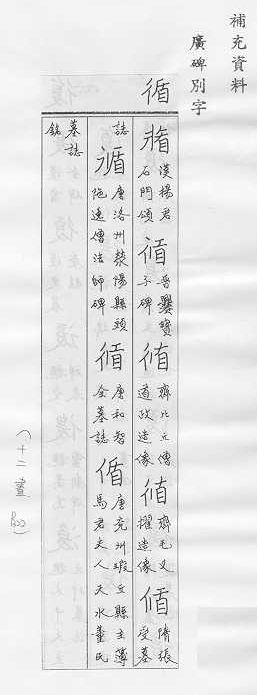 補充資料
廣碑別字
循
循 漢楊君石門頌
循 晉爨寶子碑
循 齊比丘僧道政造像
循 齊毛叉擢造像
循 隋張受墓誌
循 唐洛州滎陽縣頭陀逸僧法師碑
循 唐和智全墓誌
循 唐兗州瑕丘縣主簿馬君夫人天水董氏墓誌銘
(十二畫